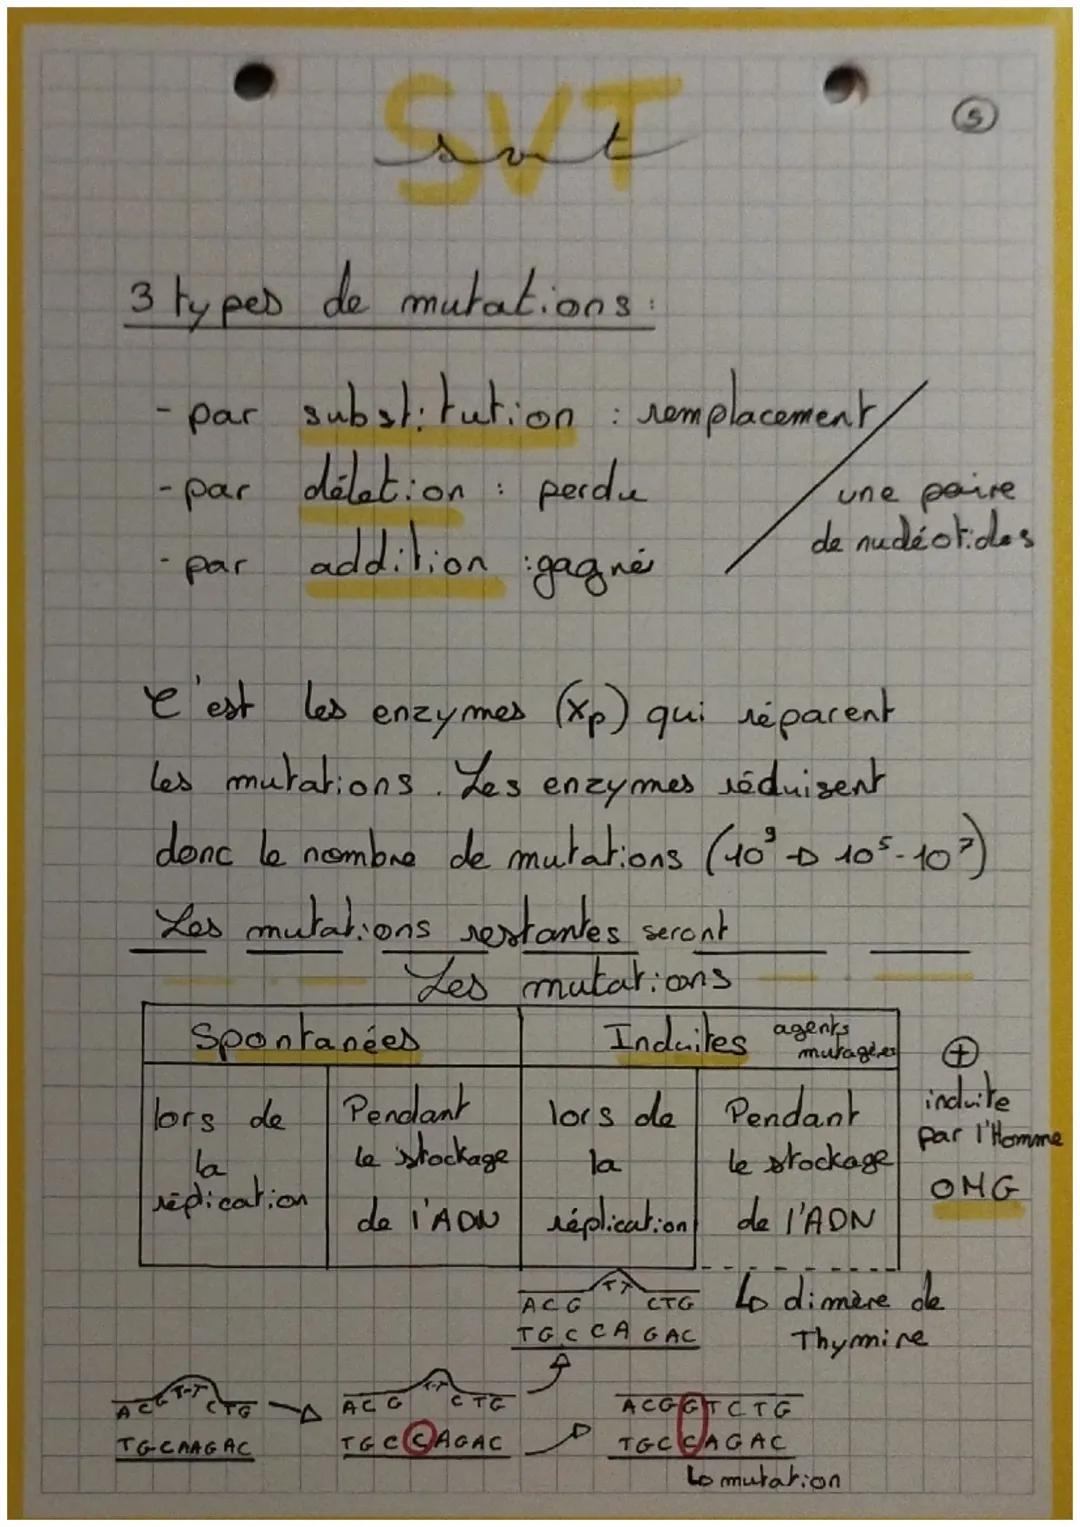 SVT
svt
5
3 types de mutations :
- par substitution : remplacement
- par délétion : perdu
- par addition : gagné
une paire
de nucléotides
C'est les enzymes (Xp) qui réparent
les mutations. Les enzymes réduisent
donc le nombre de mutations (10⁹ → 10⁵-10⁷)
Les mutations restantes seront
Les mutations
Spontanées
Induites agents mutagènes
lors de la réplication
Pendant le stockage de l'ADN
lors de la réplication
Pendant le stockage de l'ADN
+
induite
par l'Homme
OMG
ACG T-T CTG
TGCCAGAC
↳ dimère de
Thymine
ACG T-T CTG
TGCAAGAC
ACG T-T CTG
TGCCAGAC
ACGGTCTG
TGCCAGAC
↳ mutation